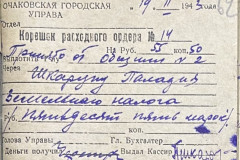 ОЧАКОВСКАЯ ГОРОДСКАЯ
УПРАВА
19 II 194
Корешок расходного ордера № 14
На Руб. 55 коп. 50
от общины № 2
Шкарупу Паладия
Земельного налога
Пятьдесят пять марок
Голова Управы Гл. Бухгалтер
Деньги получил Выдал Кассир